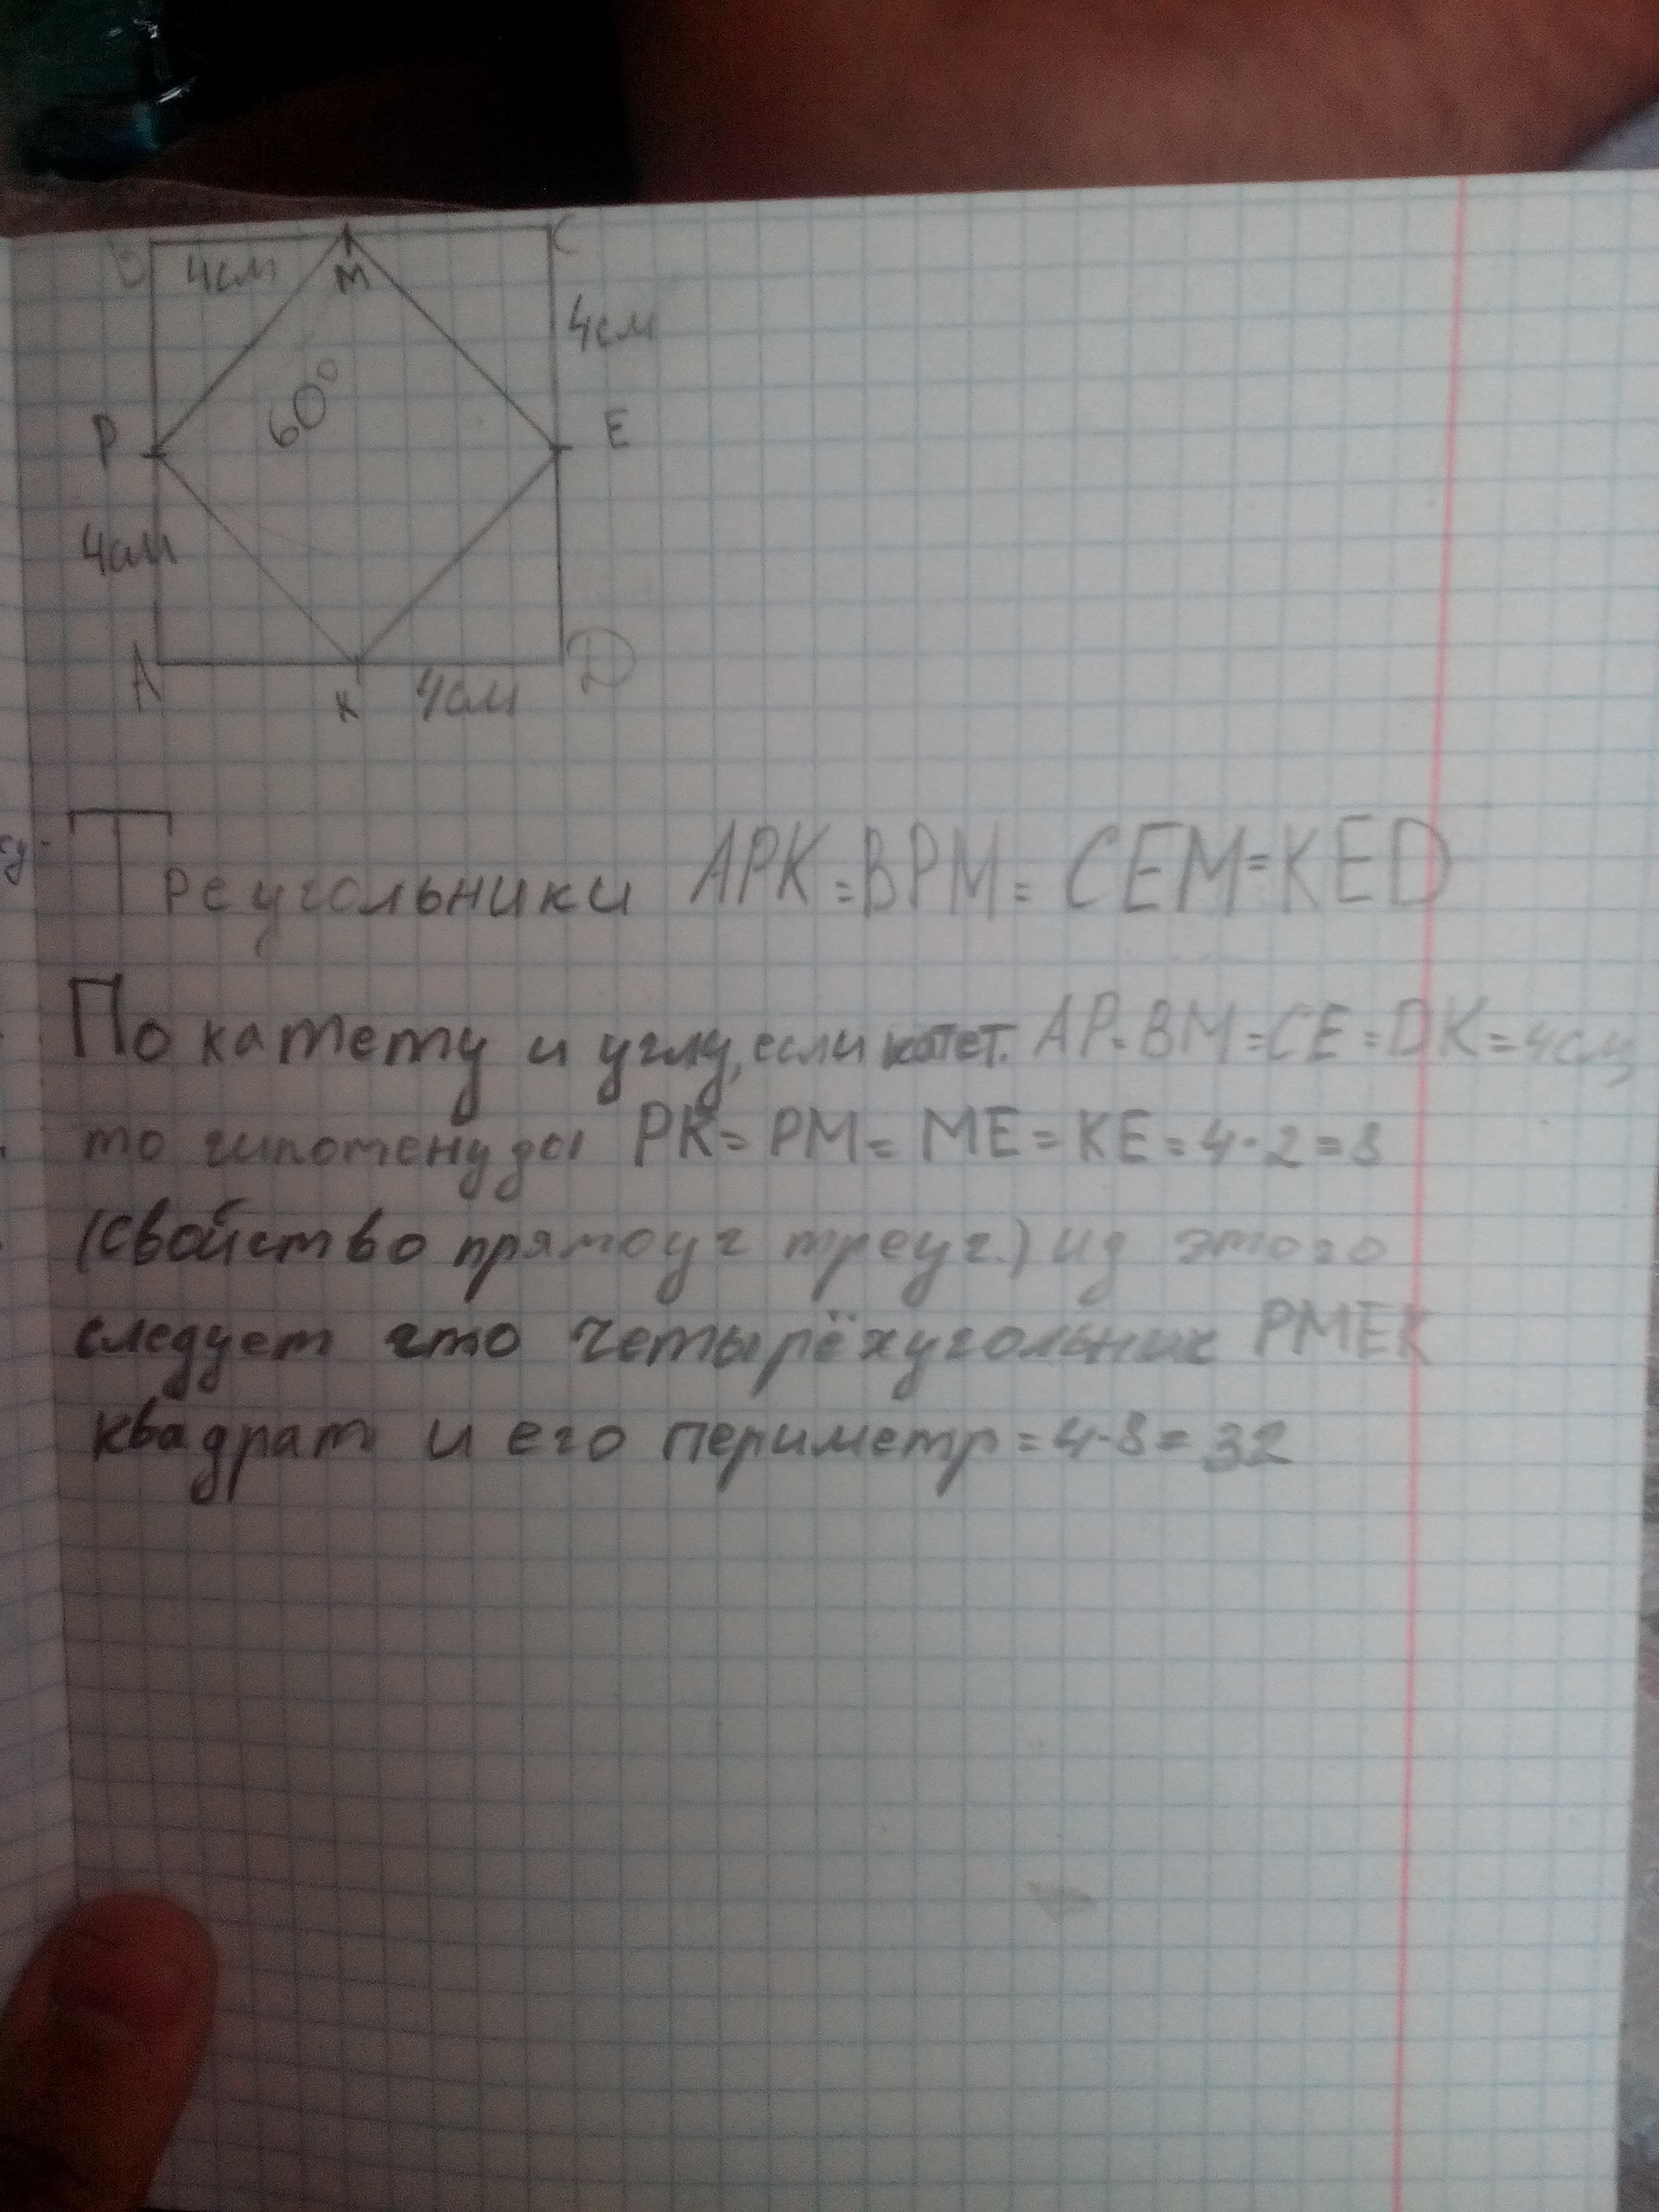 B 4см М C
4см
60°
P E
4см
A К 4см D
су-
Треугольники APK=BPM=CEM=KED
По катету и углу, если катет. AP=BM=CE=DK=4см,
то гипотенузы PK=PM=ME=KE=4·2=8
(свойство прямоуг треуг.) из этого
следует что четырёхугольник PMEK
квадрат и его периметр=4·8=32